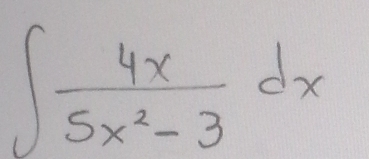 ∫ 4x / (5x² - 3) dx